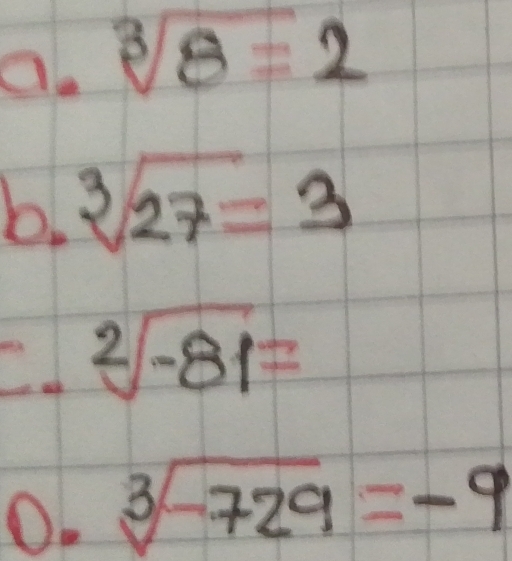 a. ∛8 = 2
b. ∛27 = 3
c. ²√-81 =
D. ∛-729 = -9